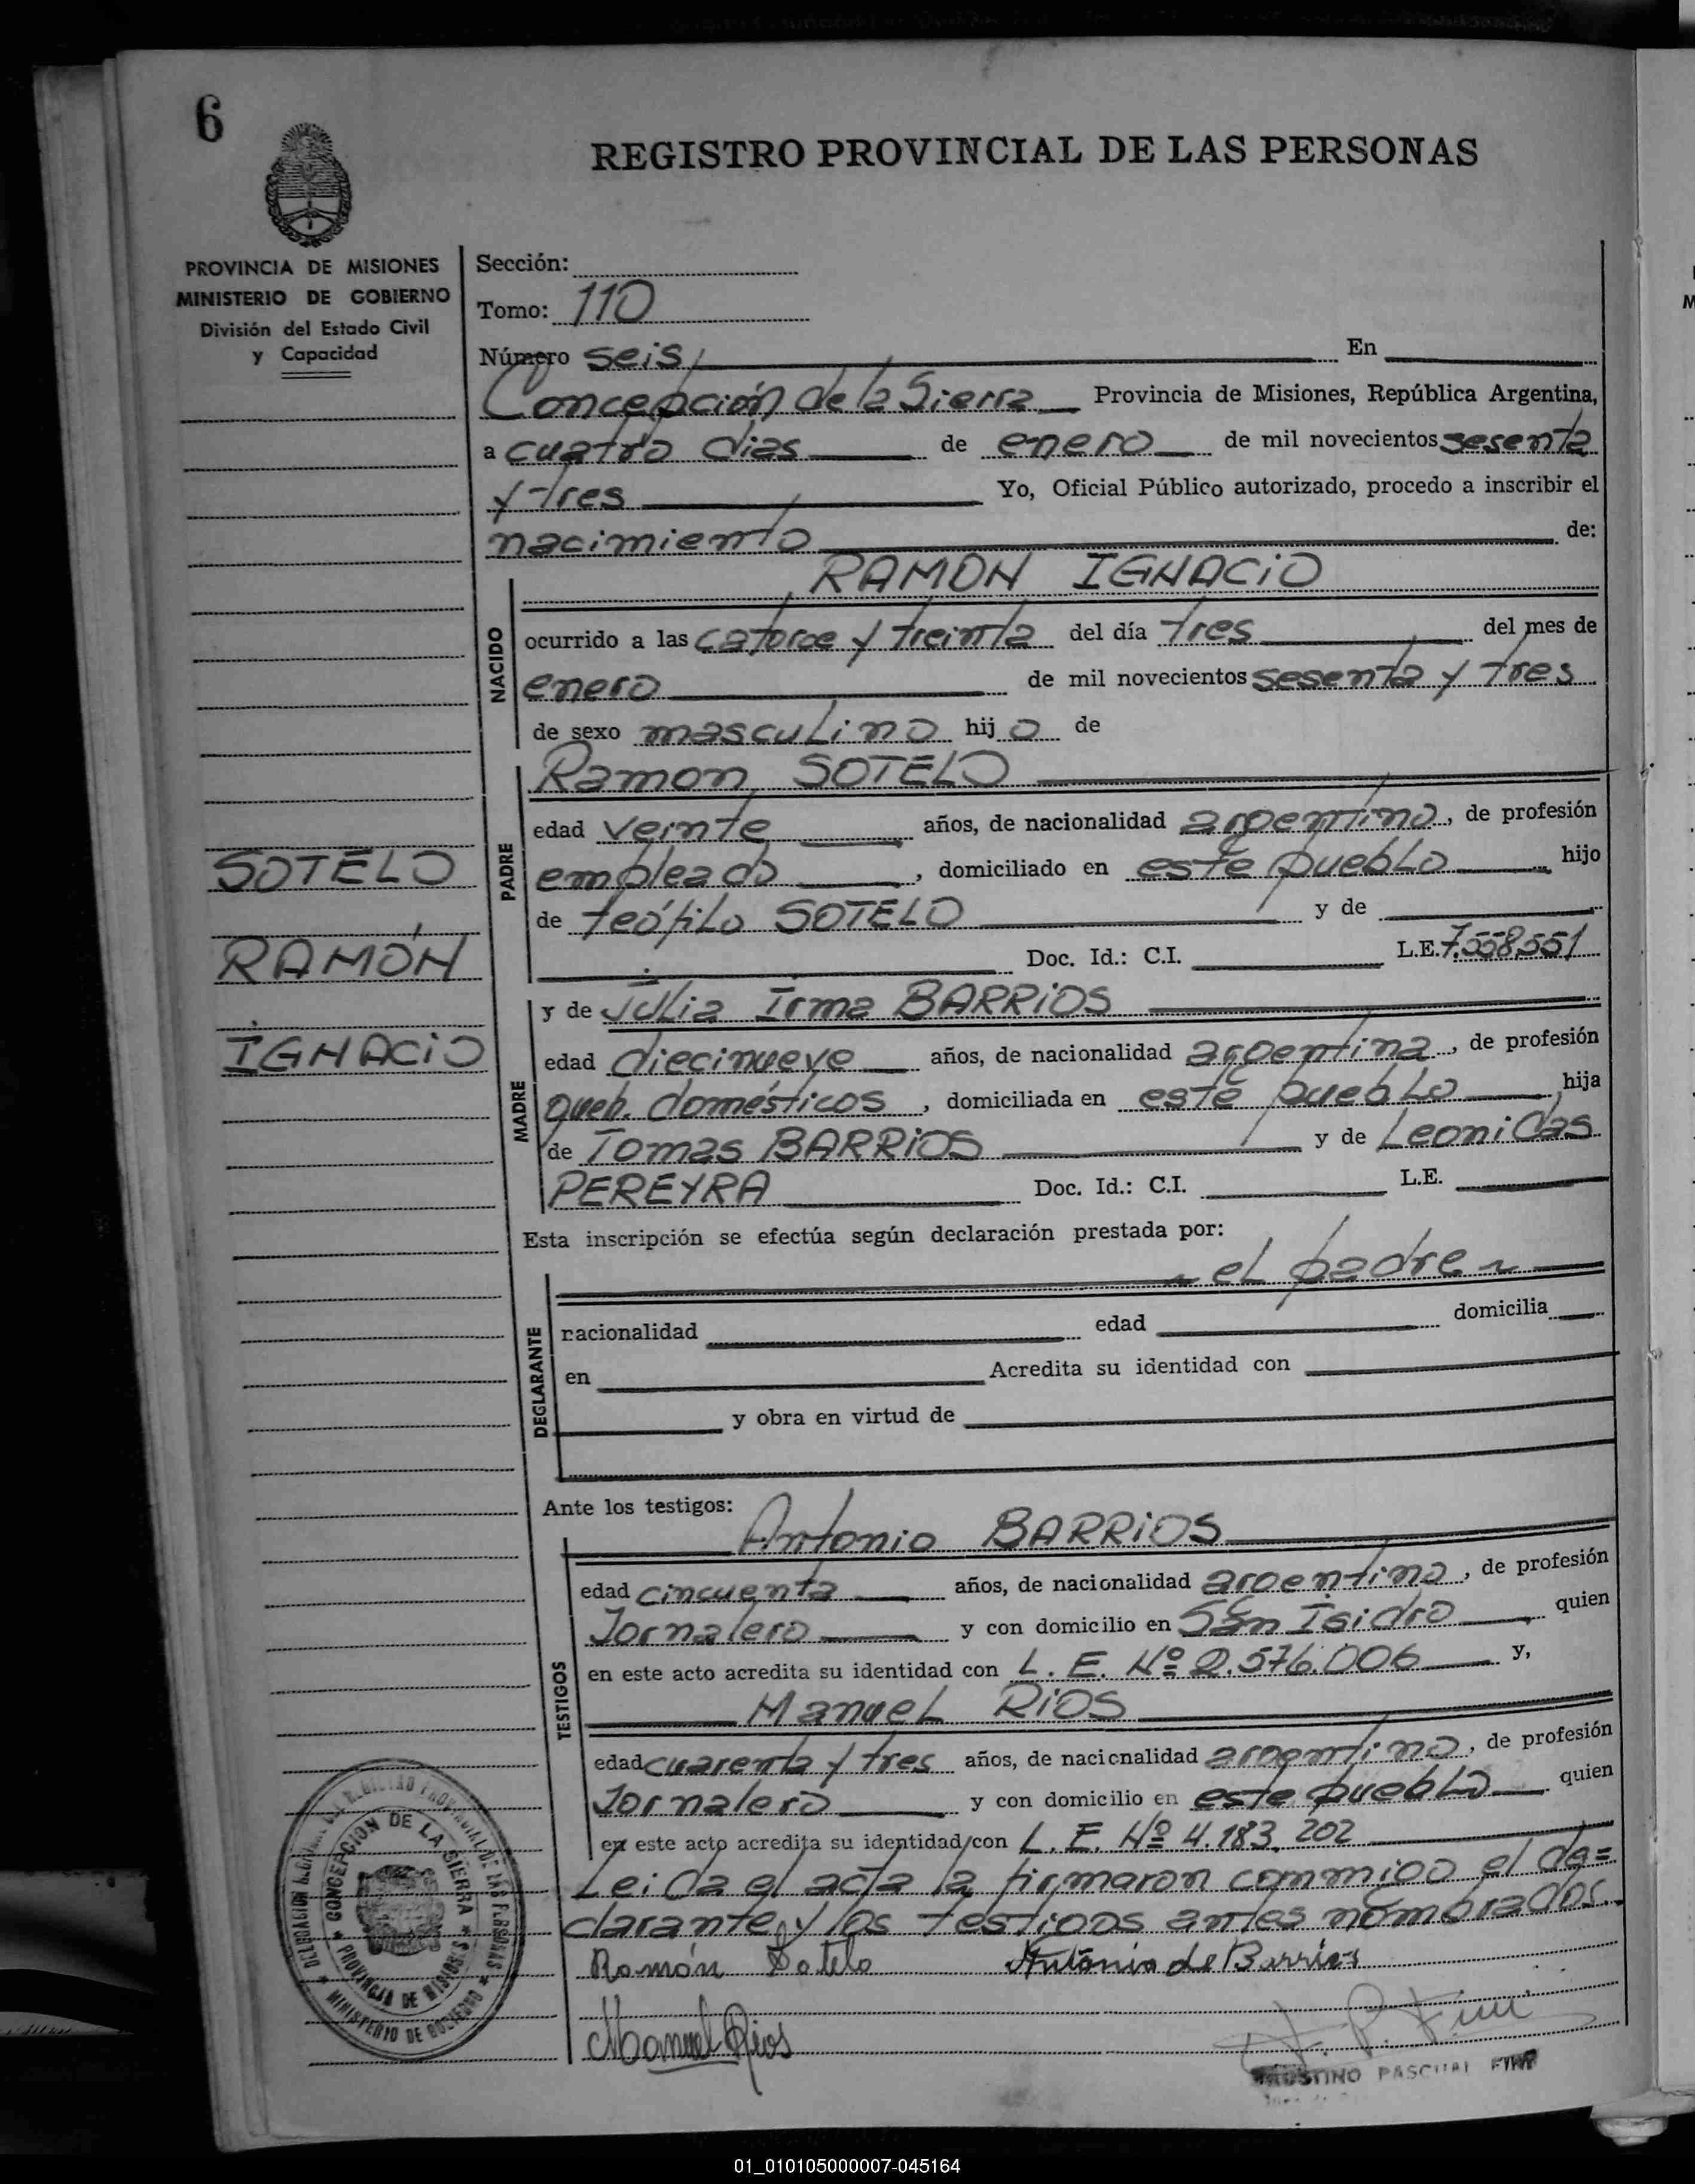 6
REGISTRO PROVINCIAL DE LAS PERSONAS
PROVINCIA DE MISIONES
MINISTERIO DE GOBIERNO
División del Estado Civil
y Capacidad
Sección:
Tomo: 110
Número seis En
Concepción de la Sierra Provincia de Misiones, República Argentina,
a cuatro dias de enero de mil novecientos sesenta
y tres Yo, Oficial Público autorizado, procedo a inscribir el
nacimiento de:
NACIDO
RAMON IGNACIO
ocurrido a las catorce y treinta del día tres del mes de
enero de mil novecientos sesenta y tres
de sexo masculino hijo de
PADRE
Ramon SOTELO
edad veinte años, de nacionalidad argentino, de profesión
empleado, domiciliado en este pueblo hijo
de teófilo SOTELO y de
Doc. Id.: C.I. L.E. 7.558,551
SOTELO
RAMÓN
IGNACIO
MADRE
y de Julia Irma BARRIOS
edad diecinueve años, de nacionalidad argentina, de profesión
queh. domésticos, domiciliada en este pueblo hija
de Tomas BARRIOS y de Leonidas
PEREYRA Doc. Id.: C.I. L.E.
Esta inscripción se efectúa según declaración prestada por:
DECLARANTE
el padre
nacionalidad edad domicilia
en Acredita su identidad con
y obra en virtud de
Ante los testigos:
TESTIGOS
Antonio BARRIOS
edad cincuenta años, de nacionalidad argentino, de profesión
Jornalero y con domicilio en San Isidro quien
en este acto acredita su identidad con L. E. Nº 2.576.006 y,
Manuel RIOS
edad cuarenta y tres años, de nacionalidad argentino, de profesión
Jornalero y con domicilio en este pueblo quien
en este acto acredita su identidad con L. E. Nº 4.183.202
Leida el acta la firmaron conmigo el de=
clarante y los testigos antes nombrados.
Ramón Sotelo Antonio de Barrios
Manuel Rios
PASCUAL
CONCEPCION DE LA SIERRA
PROVINCIA DE MISIONES
MINISTERIO DE GOBIERNO
01_010105000007-045164